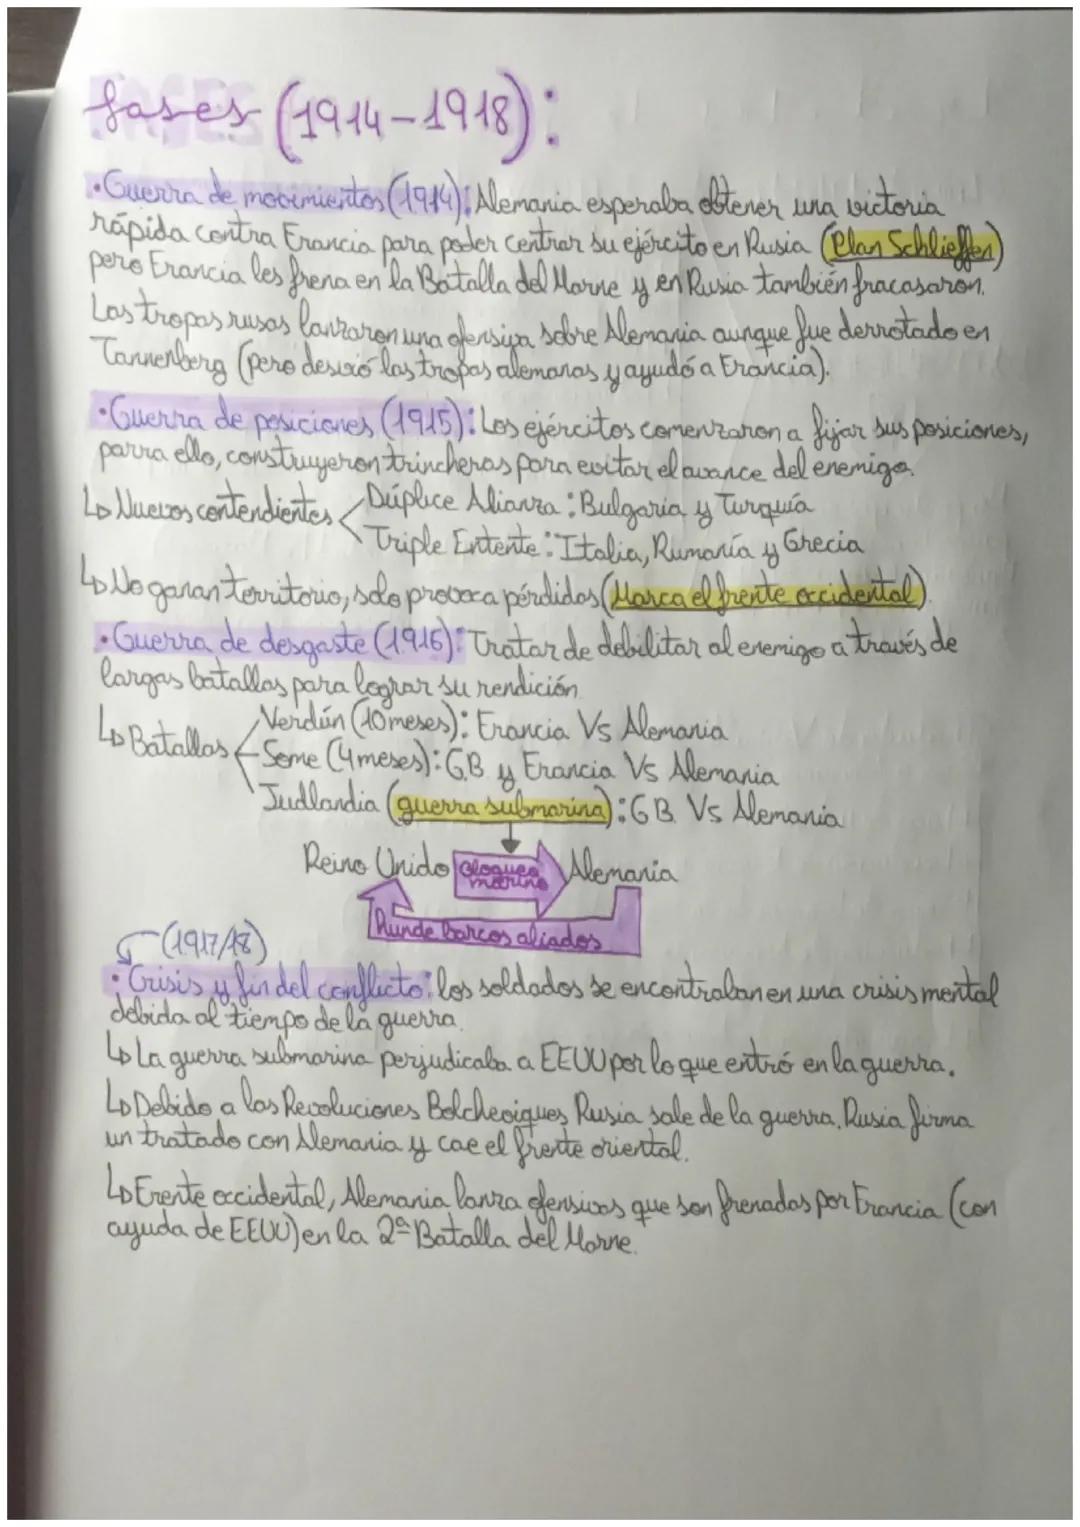 fases (1914-1918):
• Guerra de movimientos (1914): Alemania esperaba obtener una victoria
rápida contra Francia para poder centrar su ejército en Rusia (Plan Schlieffen)
pero Francia les frena en la Batalla del Marne y en Rusia también fracasaron.
Las tropas rusas lanzaron una ofensiva sobre Alemania aunque fue derrotado en
Tannenberg (pero desvió las tropas alemanas y ayudó a Francia).
• Guerra de posiciones (1915): Los ejércitos comenzaron a fijar sus posiciones,
parra ello, construyeron trincheras para evitar el avance del enemigo.
↳ Nuevos contendientes < Dúplice Alianza: Bulgaria y Turquía
Triple Entente: Italia, Rumanía y Grecia
↳ No ganan territorio, solo provoca pérdidas (Marca el frente occidental).
• Guerra de desgaste (1916): Tratar de debilitar al enemigo a través de
largas batallas para lograr su rendición
Verdún (10 meses): Francia Vs Alemania
↳ Batallas < Some (4 meses): G.B y Francia Vs Alemania
Judlandia (guerra submarina): G B. Vs Alemania
Reino Unido bloqueo marino Alemania
Hunde barcos aliados
(1917/18)
• Crisis y fin del conflicto: los soldados se encontraban en una crisis mental
debida al tiempo de la guerra.
↳ La guerra submarina perjudicaba a EEUU por lo que entró en la guerra.
↳ Debido a las Revoluciones Bolcheviques, Rusia sale de la guerra. Rusia firma
un tratado con Alemania y cae el frente oriental.
↳ Frente occidental, Alemania lanza ofensivas que son frenadas por Francia (con
ayuda de EEUU) en la 2ª Batalla del Marne.